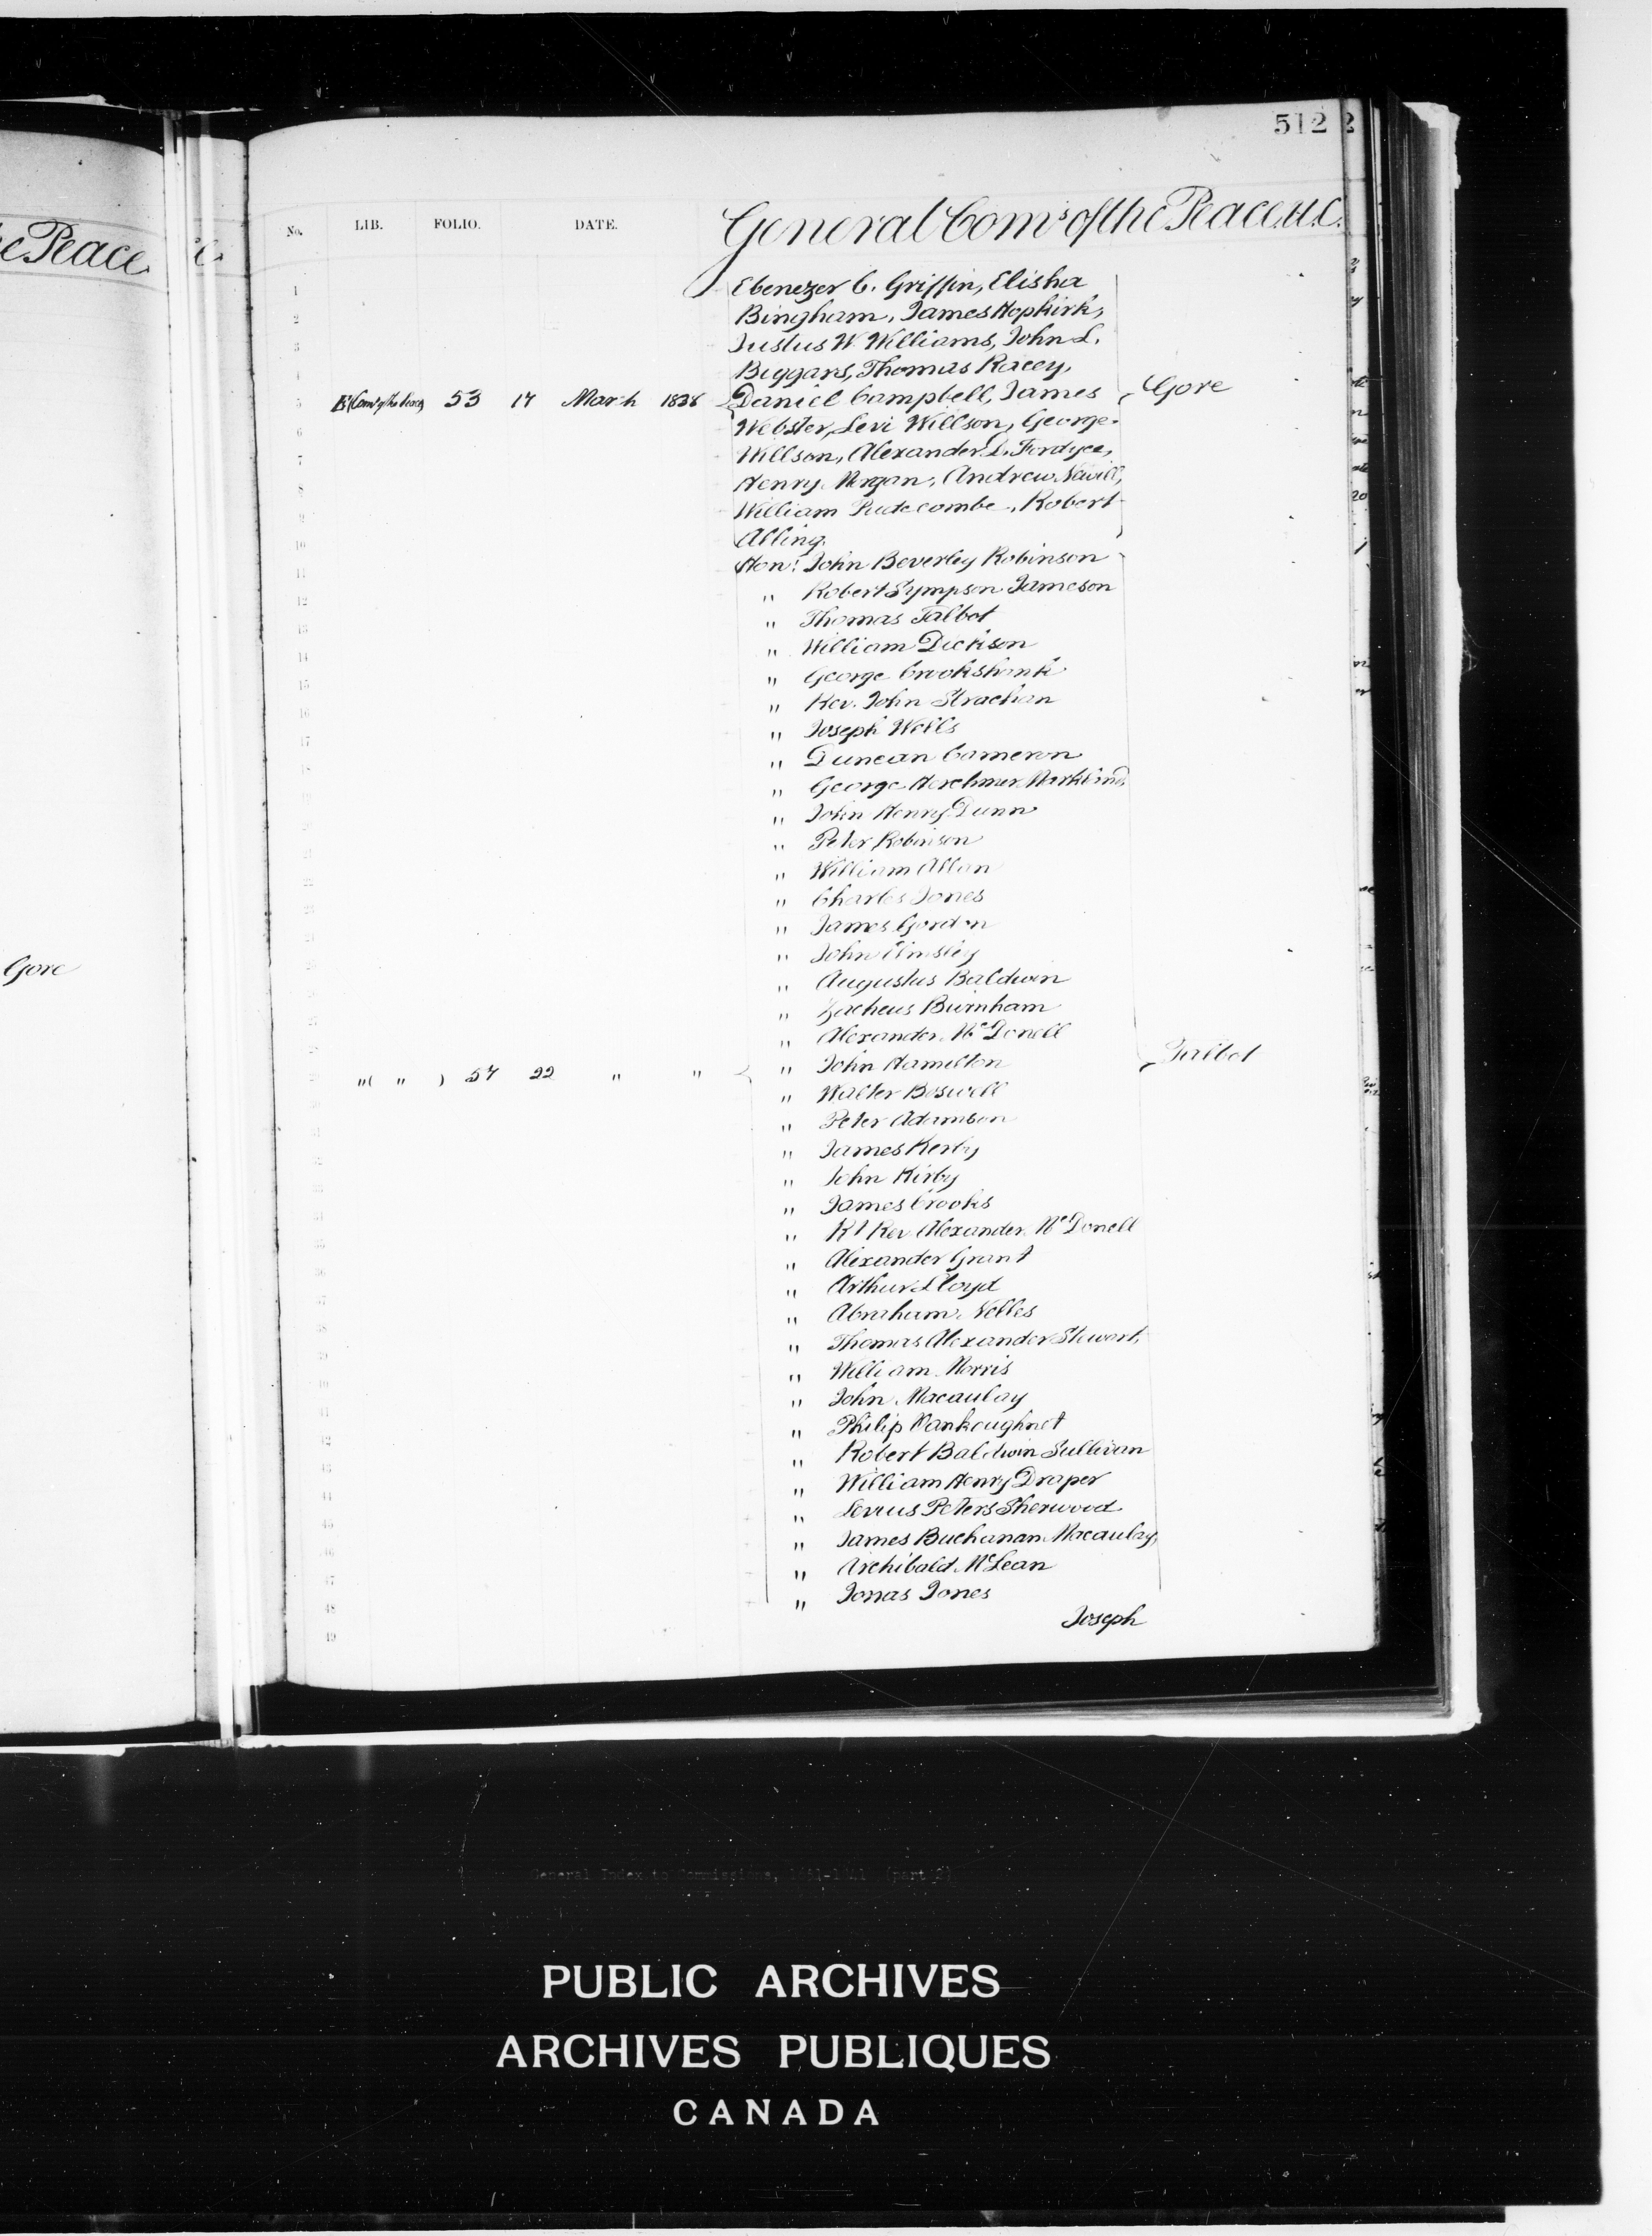 512 2
e Peace
No. LIB. FOLIO. DATE. General Com.s of the Peace U.C.
Ebenezer C. Griffin, Elisha
Bingham, James Hopkirk,
Justus W. Williams, John L.
Biggars, Thomas Racey,
E (Com. of the Peace) 53 17 March 1838 Daniel Campbell, James Gore
Webster, Levi Willson, George
Willson, Alexander D. Fordyce,
Henry Morgan, Andrew Nevill,
William Rutecombe, Robert
Alling.
Hon: John Beverley Robinson
" Robert Sympson Jameson
" Thomas Talbot
" William Dickson
" George Crookshank
" Rev. John Strachan
" Joseph Wells
" Duncan Cameron
" George Herchmer Markland
" John Henry Dunn
" Peter Robinson
" William Allan
" Charles Jones
" James Gordon
" John Elmsley
Gore
" Augustus Baldwin
" Zacheus Burnham
" Alexander McDonell
"( " ) 57 22 " " " John Hamilton Talbot
" Walter Boswell
" Peter Adamson
" James Kerby
" John Kirby
" James Crooks
" Rt Rev. Alexander McDonell
" Alexander Grant
" Arthur Lloyd
" Abraham Nelles
" Thomas Alexander Stewart
" William Morris
" John Macaulay
" Philip Vankoughnet
" Robert Baldwin Sullivan
" William Henry Draper
" Levius Peters Sherwood
" James Buchanan Macaulay
" Archibald McLean
" Jonas Jones
Joseph
General Index to Commissions, (part 2)
PUBLIC ARCHIVES
ARCHIVES PUBLIQUES
CANADA